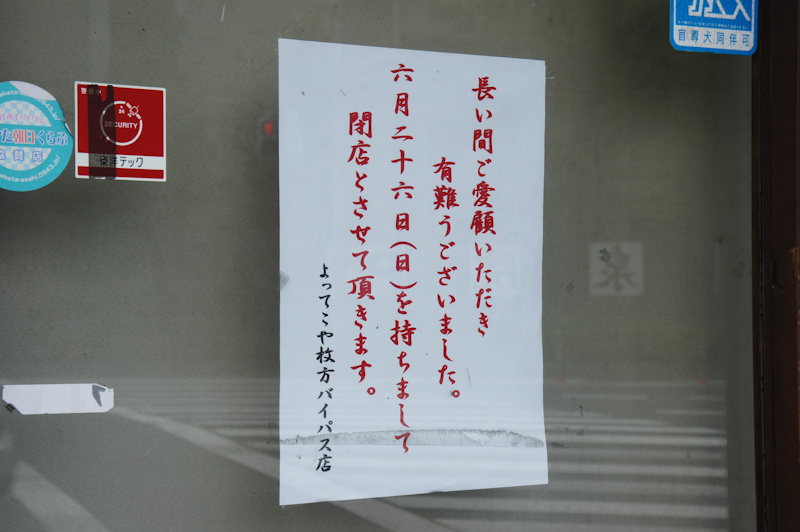 長い間ご愛顧いただき
有難うございました。
六月二十六日(日)を持ちまして
閉店とさせて頂きます。
よってこや枚方バイパス店
24
SECURITY
東洋テック
た朝日くらぶ
協賛店
盲導犬同伴可
泉